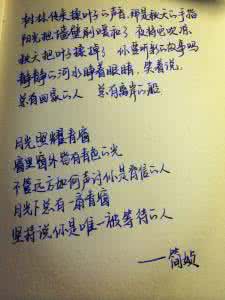 树林传来揉叶子的声音,那是秋天的手指
阳光把墙壁刷暖和了 夜将它吹凉
秋天把叶子揉掉了 你要听新故事吗
静静的河水睁着眼睛,笑着说:
总有回家的人 总有离岸的船
月光照耀青窗
窗里窗外皆有青色的光
不管远方如何声讨你是背信的人
月光下总有一扇青窗
坚持说你是唯一被等待的人
——简媜